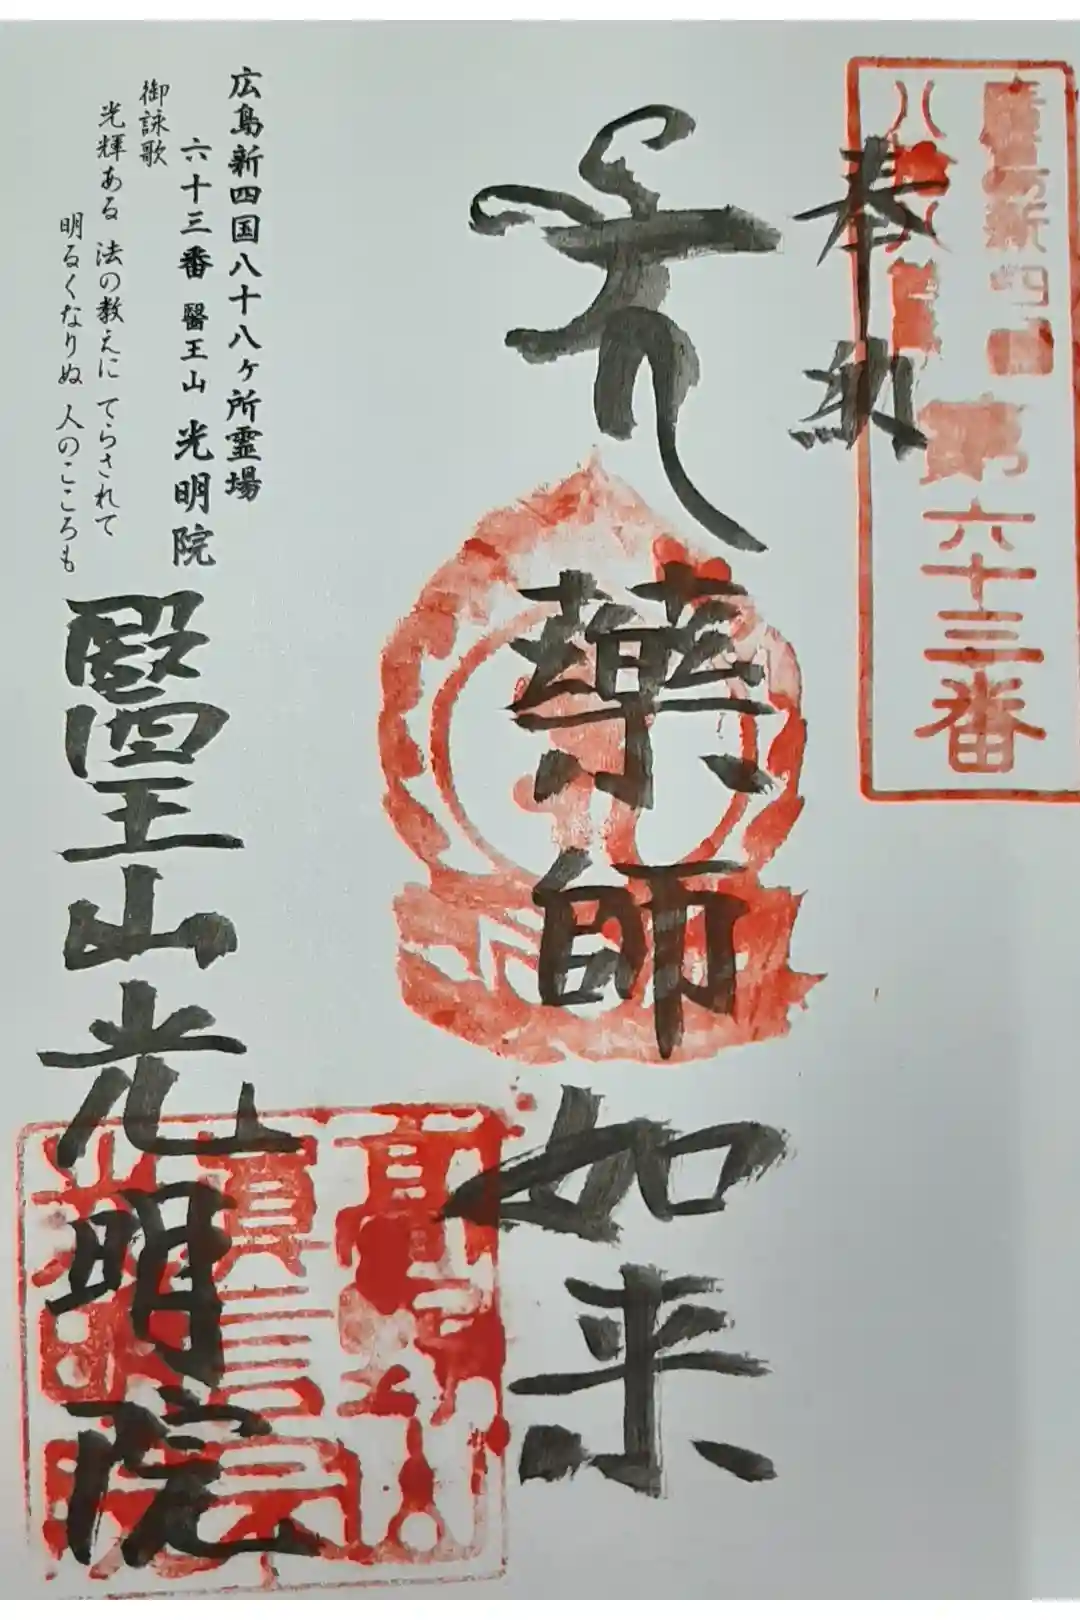 廣島新四國
八十八ヶ所
第六十三番
奉納
薬師如来
広島新四国八十八ヶ所霊場
六十三番 醫王山 光明院
御詠歌
光輝ある 法の教えに てらされて
明るくなりぬ 人のこころも
醫王山光明院